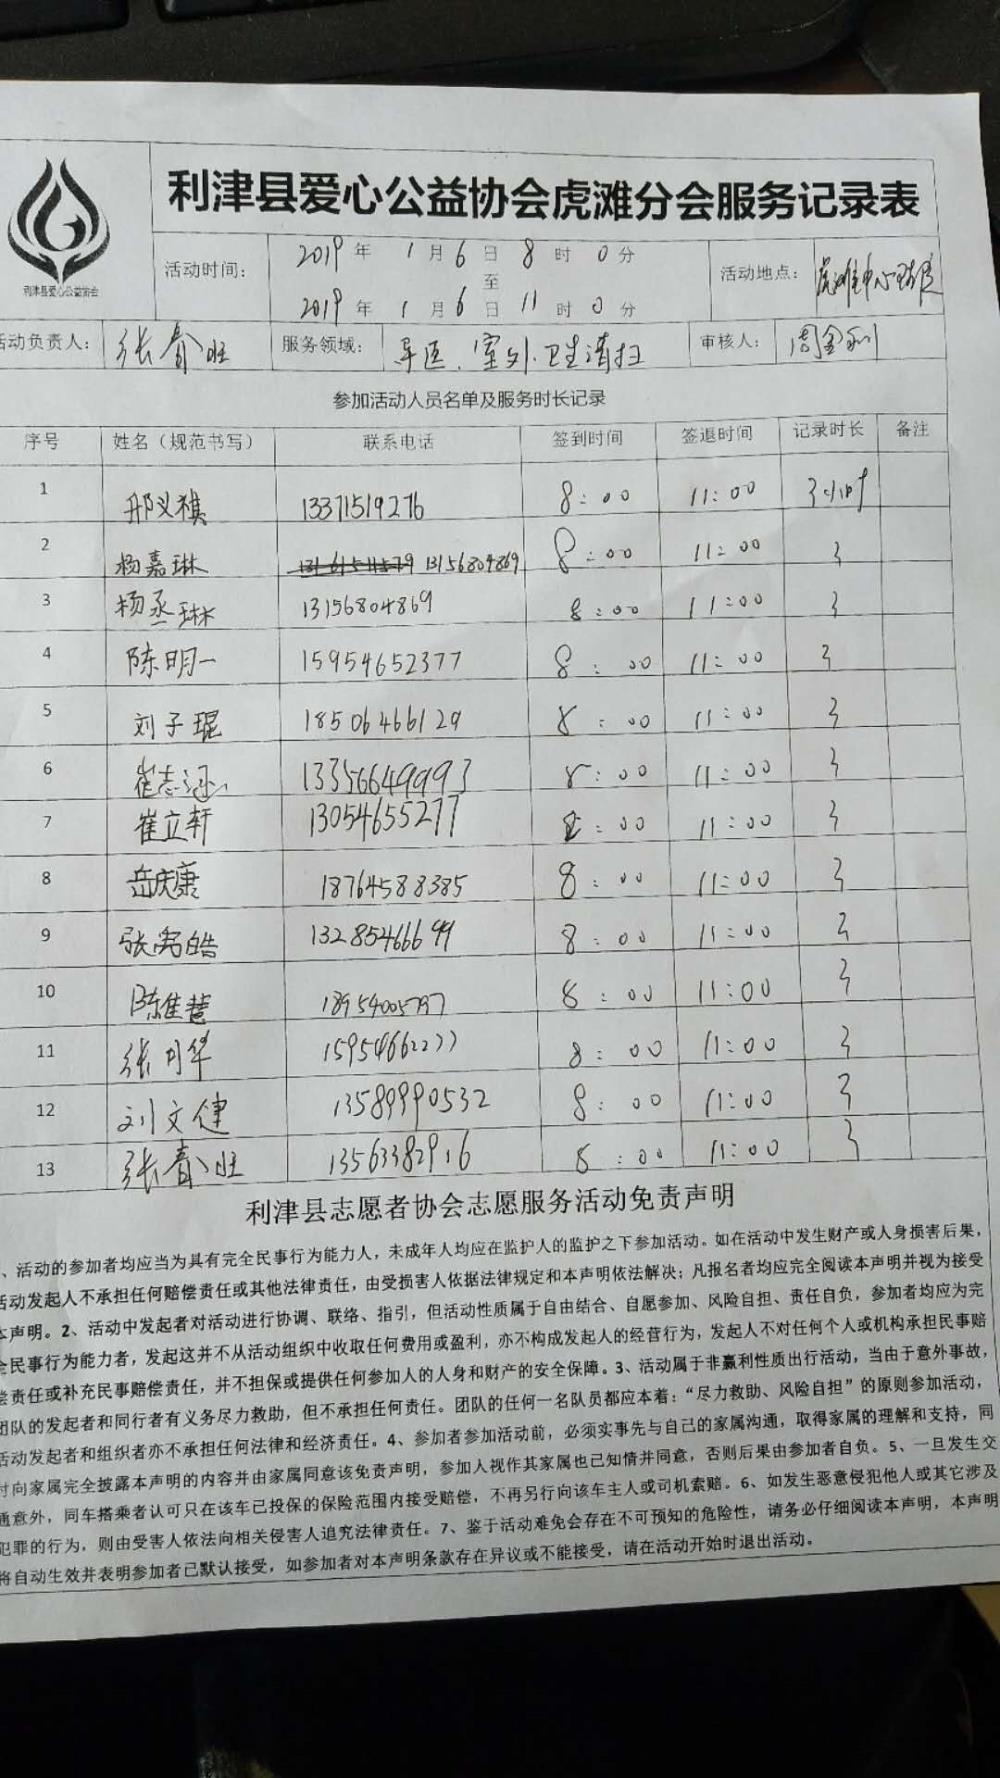 利津县爱心公益协会
利津县爱心公益协会虎滩分会服务记录表
活动时间: 2019年 1月6日 8时 0分
至
2019年 1月6日 11时 0分
活动地点: 虎滩中心
活动负责人: 张春旺 服务领域: 导医、室外卫生清扫 审核人: 周金利
参加活动人员名单及服务时长记录
序号 姓名（规范书写） 联系电话 签到时间 签退时间 记录时长 备注
1 邢义祺 13371519276 8:00 11:00 3小时
2 杨嘉琳 13156804869 8:00 11:00 3
3 杨丞琳 13156804869 8:00 11:00 3
4 陈明一 15954652377 8:00 11:00 3
5 刘子琨 18506466129 8:00 11:00 3
6 崔志涵 13356649993 8:00 11:00 3
7 崔立轩 13054655277 8:00 11:00 3
8 岳庆康 18764588385 8:00 11:00 3
9 张皓 13285466699 8:00 11:00 3
10 陈佳慧 18954005797 8:00 11:00 3
11 张月华 15954662277 8:00 11:00 3
12 刘文健 13589990532 8:00 11:00 3
13 张春旺 13563382916 8:00 11:00 3
利津县志愿者协会志愿服务活动免责声明
、活动的参加者均应当为具有完全民事行为能力人，未成年人均应在监护人的监护之下参加活动。如在活动中发生财产或人身损害后果，
活动发起人不承担任何赔偿责任或其他法律责任，由受损害人依据法律规定和本声明依法解决；凡报名者均应完全阅读本声明并视为接受
本声明。2、活动中发起者对活动进行协调、联络、指引，但活动性质属于自由结合、自愿参加、风险自担、责任自负，参加者均应为完
全民事行为能力者，发起这并不从活动组织中收取任何费用或盈利，亦不构成发起人的经营行为，发起人不对任何个人或机构承担民事赔
偿责任或补充民事赔偿责任，并不担保或提供任何参加人的人身和财产的安全保障。3、活动属于非赢利性质出行活动，当由于意外事故，
团队的发起者和同行者有义务尽力救助，但不承担任何责任。团队的任何一名队员都应本着：“尽力救助、风险自担”的原则参加活动，
活动发起者和组织者亦不承担任何法律和经济责任。4、参加者参加活动前，必须实事先与自己的家属沟通，取得家属的理解和支持，同
时向家属完全披露本声明的内容并由家属同意该免责声明，参加人视作其家属也已知情并同意，否则后果由参加者自负。5、一旦发生交
通意外，同车搭乘者认可只在该车已投保的保险范围内接受赔偿，不再另行向该车主人或司机索赔。6、如发生恶意侵犯他人或其它涉及
犯罪的行为，则由受害人依法向相关侵害人追究法律责任。7、鉴于活动难免会存在不可预知的危险性，请务必仔细阅读本声明，本声明
将自动生效并表明参加者已默认接受，如参加者对本声明条款存在异议或不能接受，请在活动开始时退出活动。